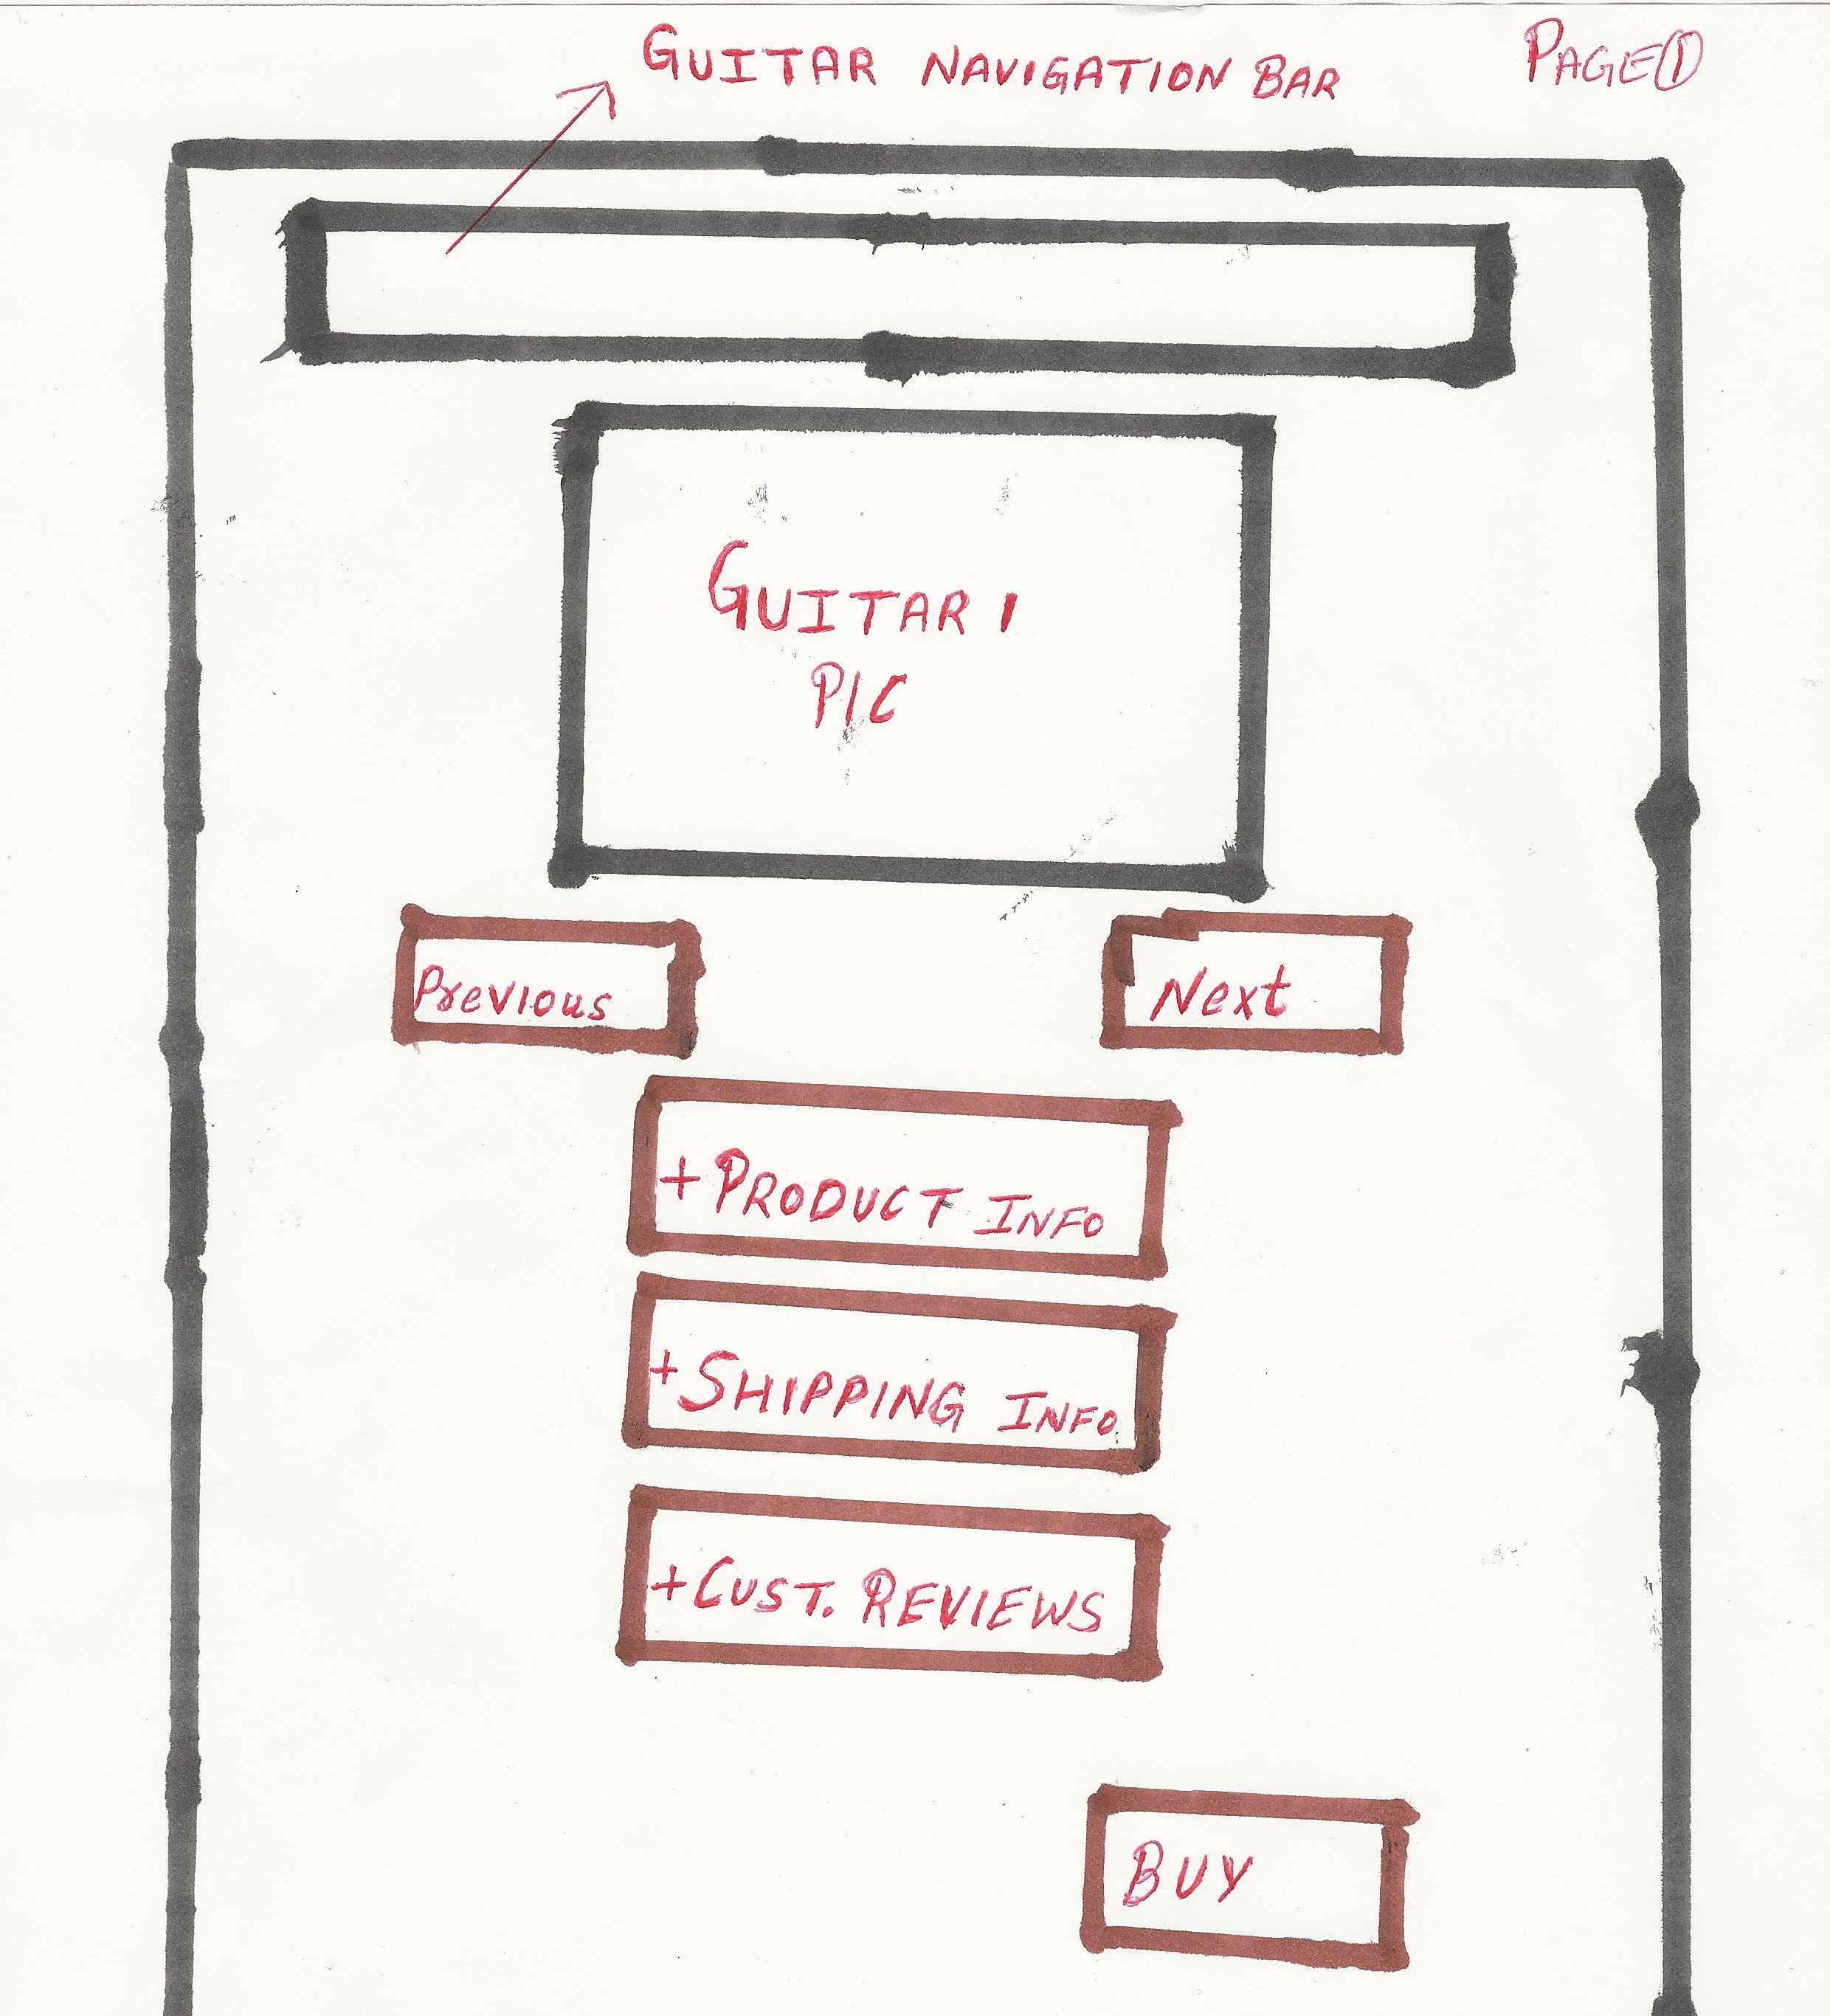 GUITAR NAVIGATION BAR
PAGE 1
GUITAR 1
PIC
Previous
Next
+ PRODUCT INFO
+ SHIPPING INFO
+ CUST. REVIEWS
BUY